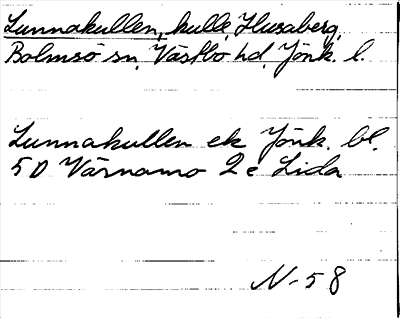 Lunnakullen, kulle, Husaberg,
Bolmsö sn. Västbo hd. Jönk. l.
Lunnakullen ek Jönk. bl.
5D Värnamo 2e Lida
N-58